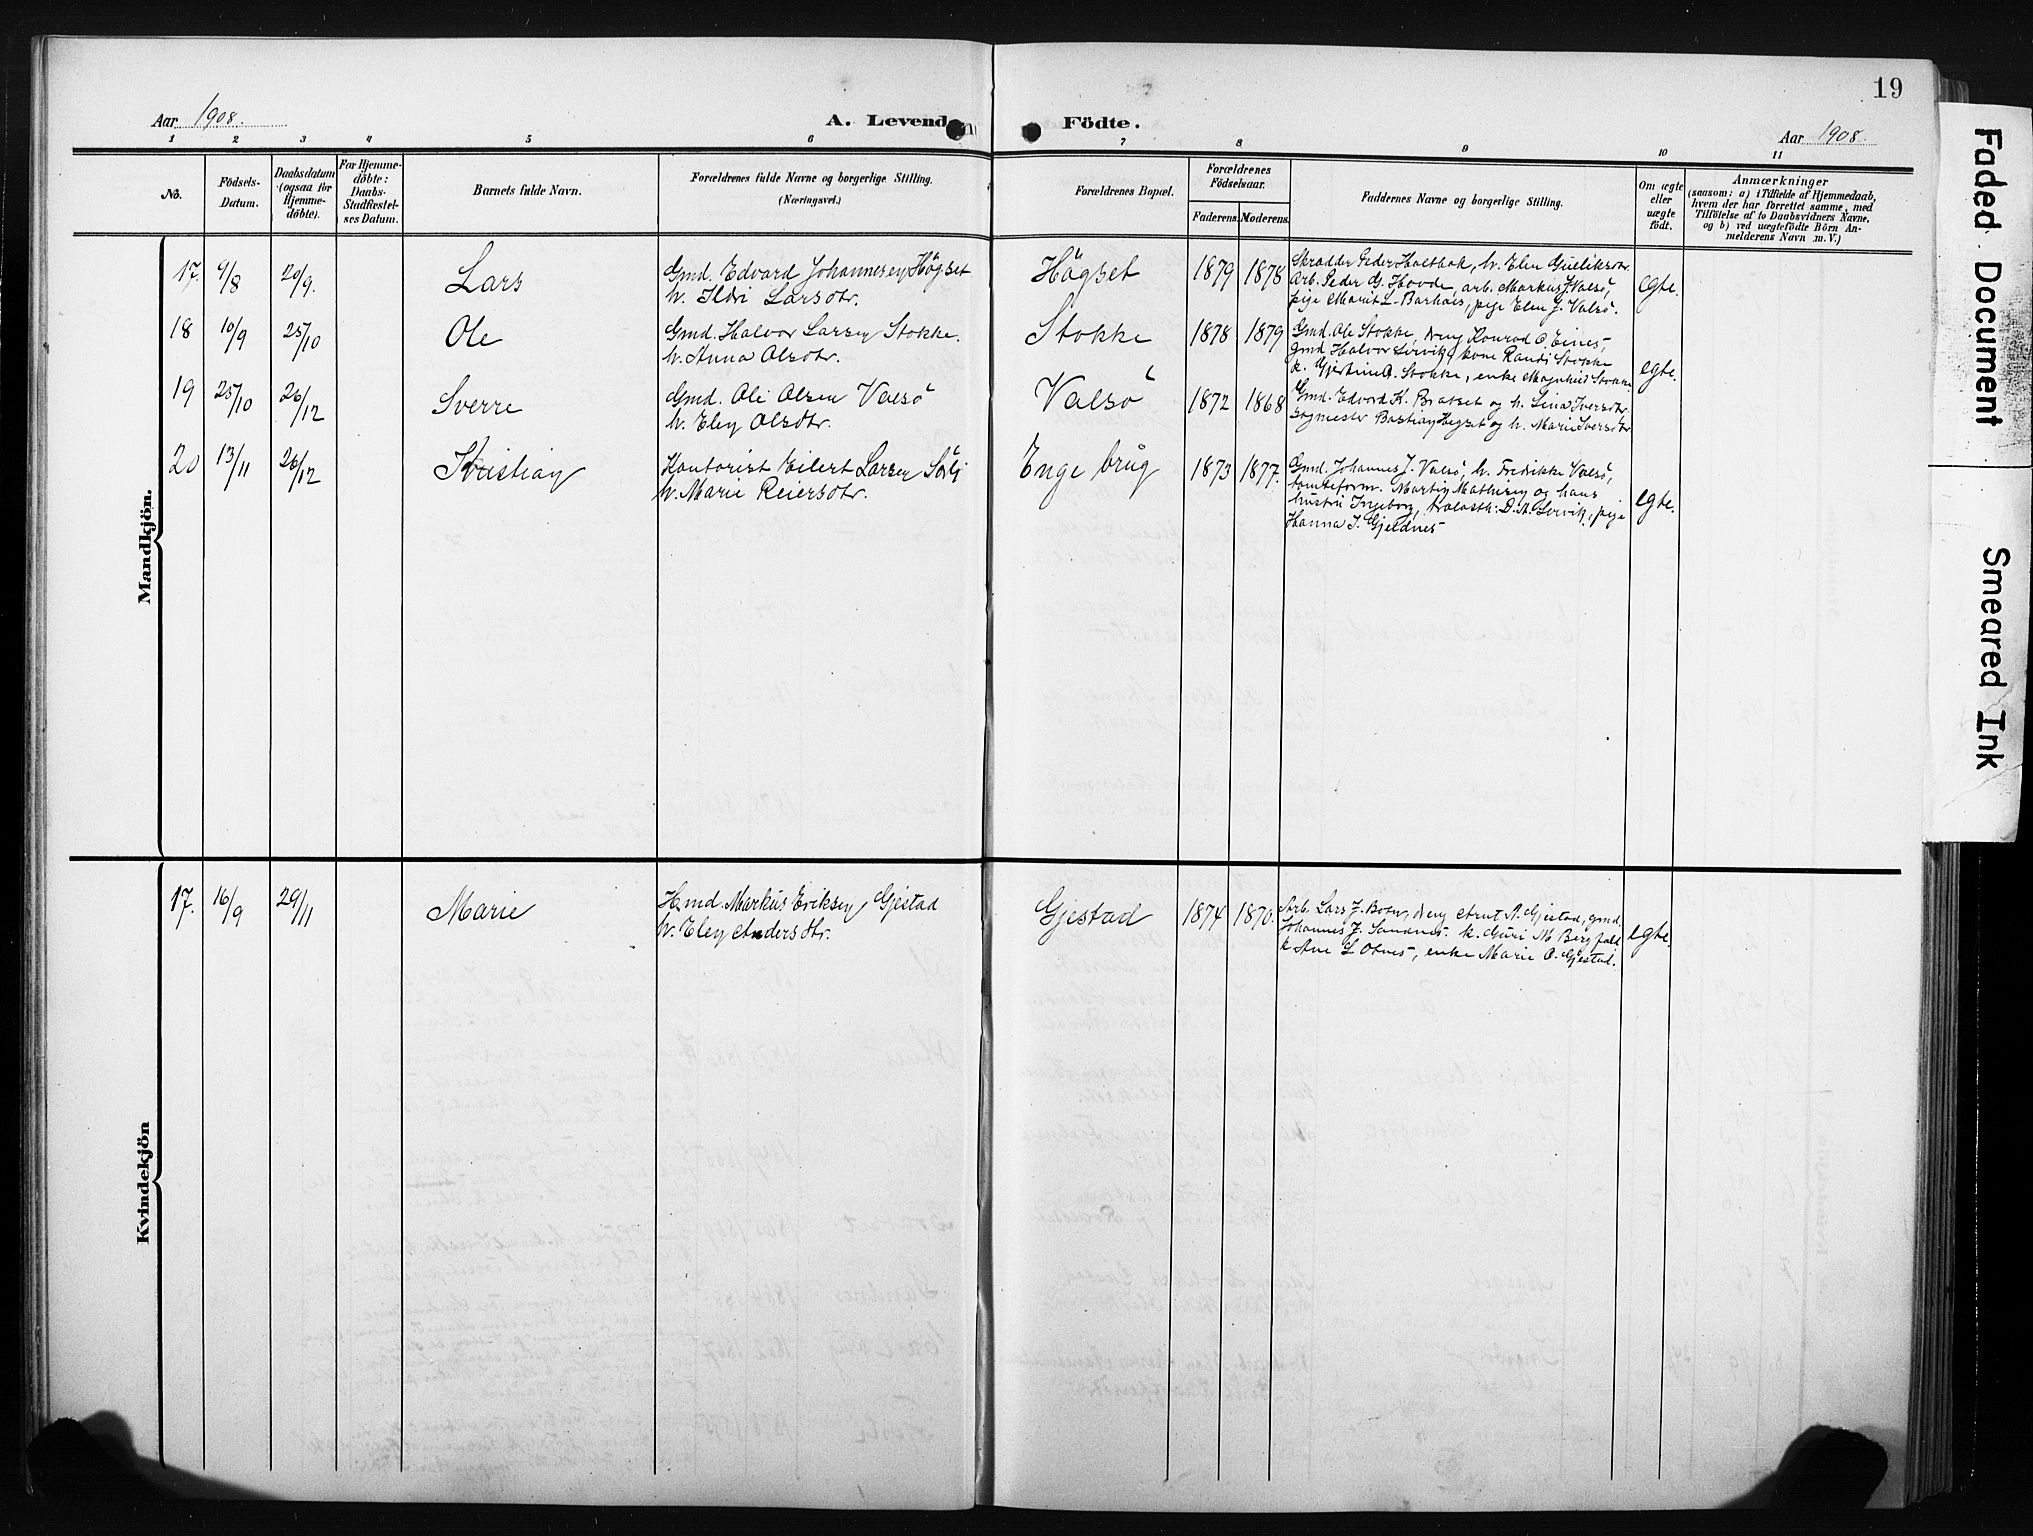 19
Aar 1908. A. Levende Födte. Aar 1908.
1 2 3 4 5 6 7 8 9 10 11
No. Födsels-Datum. Daabsdatum (ogsaa for Hjemme-döbte). For Hjemme-döbte: Daabs-Stadfæstel-ses Datum. Barnets fulde Navn. Forældrenes fulde Navne og borgerlige Stilling. (Næringsvei.) Forældrenes Bopæl. Forældrenes Födselsaar. Faderens. Moderens. Faddernes Navne og borgerlige Stilling. Om ægte eller uægte födt. Anmærkninger (saasom: a) i Tilfælde af Hjemmedaab, hvem der har forrettet samme, med Tilföielse af to Daabsvidners Navne, og b) ved uægtefödte Börn An-melderens Navn m. V.)
Mandkjön.
17. 9/8 20/9. Lars Gmd. Edvard Johannesen Högset Högset 1879 1878 Skrædder Peder Holtbak, h. Elen Gulliksdtr.
h. Ildri Larsdtr. Arb. Peder G. Hovde, arb. Markus J. Valsö, egte.
pige Marit L. Barhals, pige Elen J. Valsö.
18 10/9 25/10 Ole Gmd. Halvor Larsen Stokke. Stokke 1878 1879 Gmd. Ole Stokke, dreng Konrad O. Eines,
h. Anna Olsdtr. gmd. Halvor Servik, kone Randi Stokke
k. Gjertine A. Stokke, enke Magnhild Stokke egte.
19 25/10 26/12 Sverre Gmd. Ole Olsen Valsö Valsö 1872 1868 Gmd. Edvard K. Bratset og h. Lina Iversdtr.
h. Elen Olsdtr. sagmester Bastian Hegset og h. Marie Iversdtr.
20 13/11 26/12 Kristian Kontorist Eilert Larsen Enge brug 1873 1877. Gmd. Johannes J. Valsö, h. Fredrikke Valsö,
h. Marie Reiersdtr. tomteform. Martin Mathisen og hans egte.
hustru Ingeborg, D. A. Servik, pige
Hanna I. Gjeldnes
Kvindekjön
17. 16/9 29/11 Marie Hmd. Markus Eriksen Gjestad Gjestad 1874 1870. Arb. Lars J. Botn, dreng Arnt A. Gjestad, gmd.
h. Elen Andersdtr. Johannes J. Sandnes. k. Guri M. Bergfald egte.
k. Ane L. Otnes, enke Marie O. Gjestad.
Faded Document
Smeared Ink